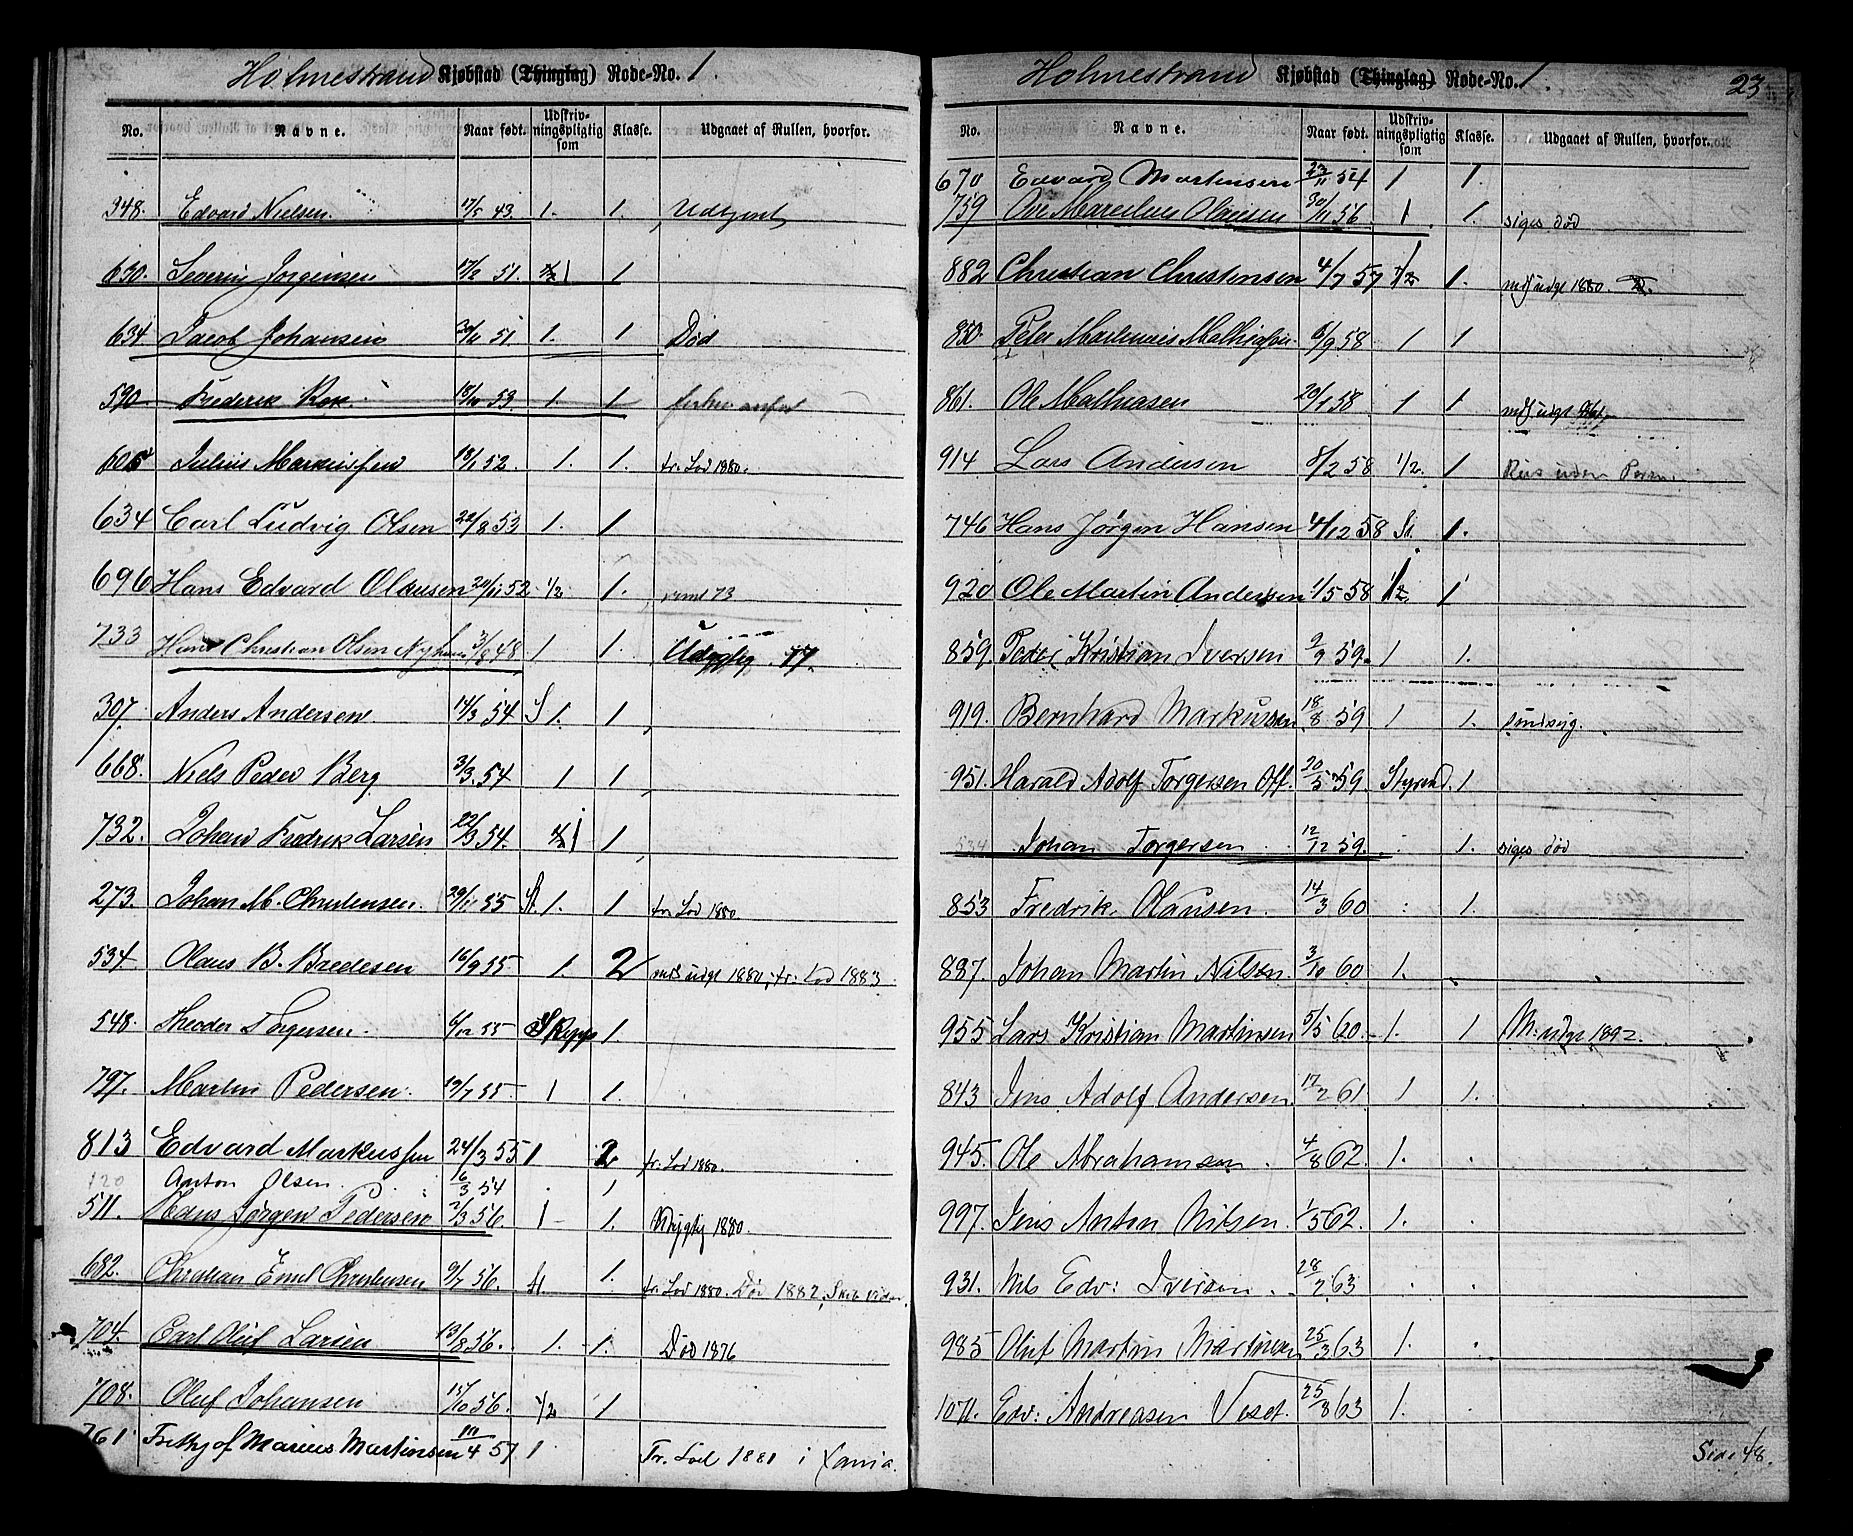 Holmestrand Kjøbstad (Thinglag) Rode-No. 1.
No. Navne. Naar født. Udskrivningspligtig som Klasse. Udgaaet af Rullen, hvorfor.
348. Edvard Nielsen. 17/5 43. 1. 1.
630. Severin Jørgensen 51. 1 1
634 Jacob Johansen 51. 1. 1 Død
590 Frederik 53. 1. 1
Julius Markussen 18/1 52. 1. 1. fr. Lod 1880.
634 Carl Ludvig Olsen 22/8 53 1. 1
696 Hans Edvard Olausen 52 1/2 1. 73
733 Hans Christian Olsen 48 1 1. 77.
307. Anders Andersen 14/3 54 S 1. 1
668. Niels Peder Berg 3/3. 54 1 1
732. Johan Fredrik Larsen 22/3 54. 1 1
273. Johan M. Christensen. 55 St. 1. 1 fr. Lod 1880
534. Olaus B. Bredesen 16/9 55 1. 2 mds udgt 1880, fr. Lod 1883
548. Theodor Torgersen. 6/12 55 1.
797. Martin Pedersen. 19/7 55. 1 1.
813 Edvard Markussen 24/3 55 1 2 fr. Lod 1880.
120 Anton Olsen. 16/3 54
511. Hans Jørgen Pedersen 2/3 56. 1 1. 1880.
682. Christian Emil Christensen 9/7 56. St. 1. fr. Lod 1880. Død 1882,
704. Carl Oluf Larsen 13/8 56. 1. 1. Død 1876
708. Oluf Johansen 15/10 56. 1/2 1
761 Frithjof Marius Martinsen 11/4 57 1 Fr. Lod 1881 i Xania.
Holmestrand Kjøbstad (Thinglag) Rode-No. 1. 23
No. Navne. Naar født. Udskrivningspligtig som Klasse. Udgaaet af Rullen, hvorfor.
670 Edvard Martinsen 23/11 54 1 1.
759 Ole Marcelius Olausen 30/11 56 1 1. siges død
882 Christian Christensen 4/7 57 1/2 1. mds udgt 1880.
850. Peter Martinius Mathissen. 6/9 58 1 1
861. Ole Mathiasen 20/1 58 1 1 mds udgt
914 Lars Andersen 8/2 58 1/2. 1
746 Hans Jørgen Hansen 4/12 58 St. 1.
920 Ole Martin Andersen 1/5 58 1/2 1
859. Peder Kristian Iversen 2/9 59. 1 1.
919. Bernhard Markussen 18/8 59 1 1. sindsyg.
951. Harald Adolf Torgersen Off. 20/5 59. Styrmd. 1
534 Johan Torgersen 12/12 59. 1. siges død
853 Fredrik Olausen. 14/3 60 1.
887. Johan Martin Nilsen. 3/10 60 1.
955 Lars Kristian Martinsen 5/5 60. 1. 1 M. udgt 1892.
843 Jens Adolf Andersen. 17/2 61 1 1.
945. Ole Abrahamsen. 4/8 62. 1.
997. Jens Anton Nilsen. 1/5 62. 1.
931. Nils Edv: Iversen. 28/2 63
985 Oluf Martin Martinsen 25/3 63 1.
1071. Edv: Andreasen Veset. 25/8 63 1.
Side 48.